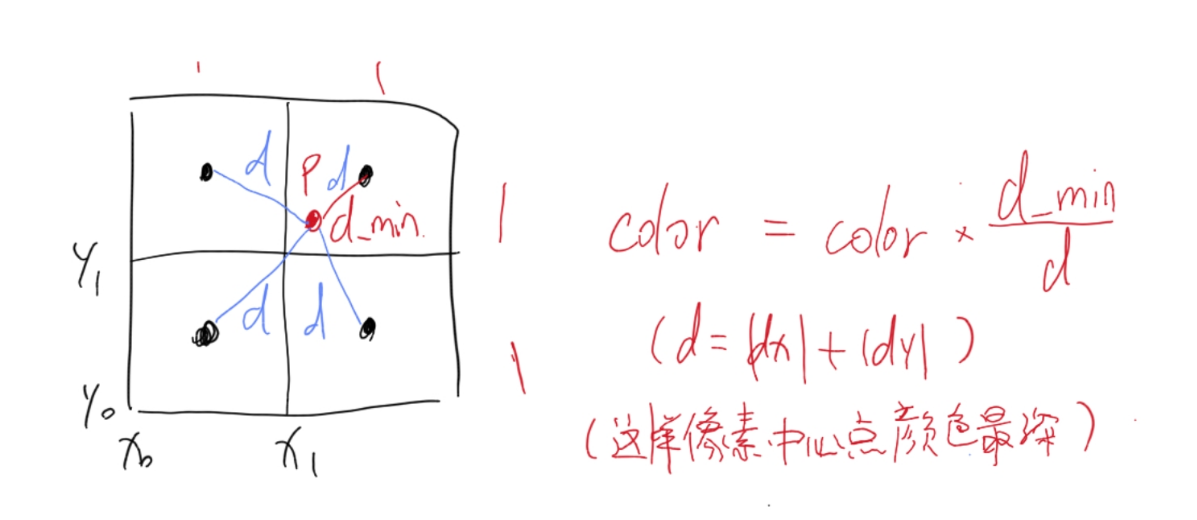 d
P d
d_min.
y₁
d d
y₀
x₀ x₁
1 1
1
1
color = color × d_min / d
(d = |dx| + |dy|)
(这样像素中心点颜色最深)